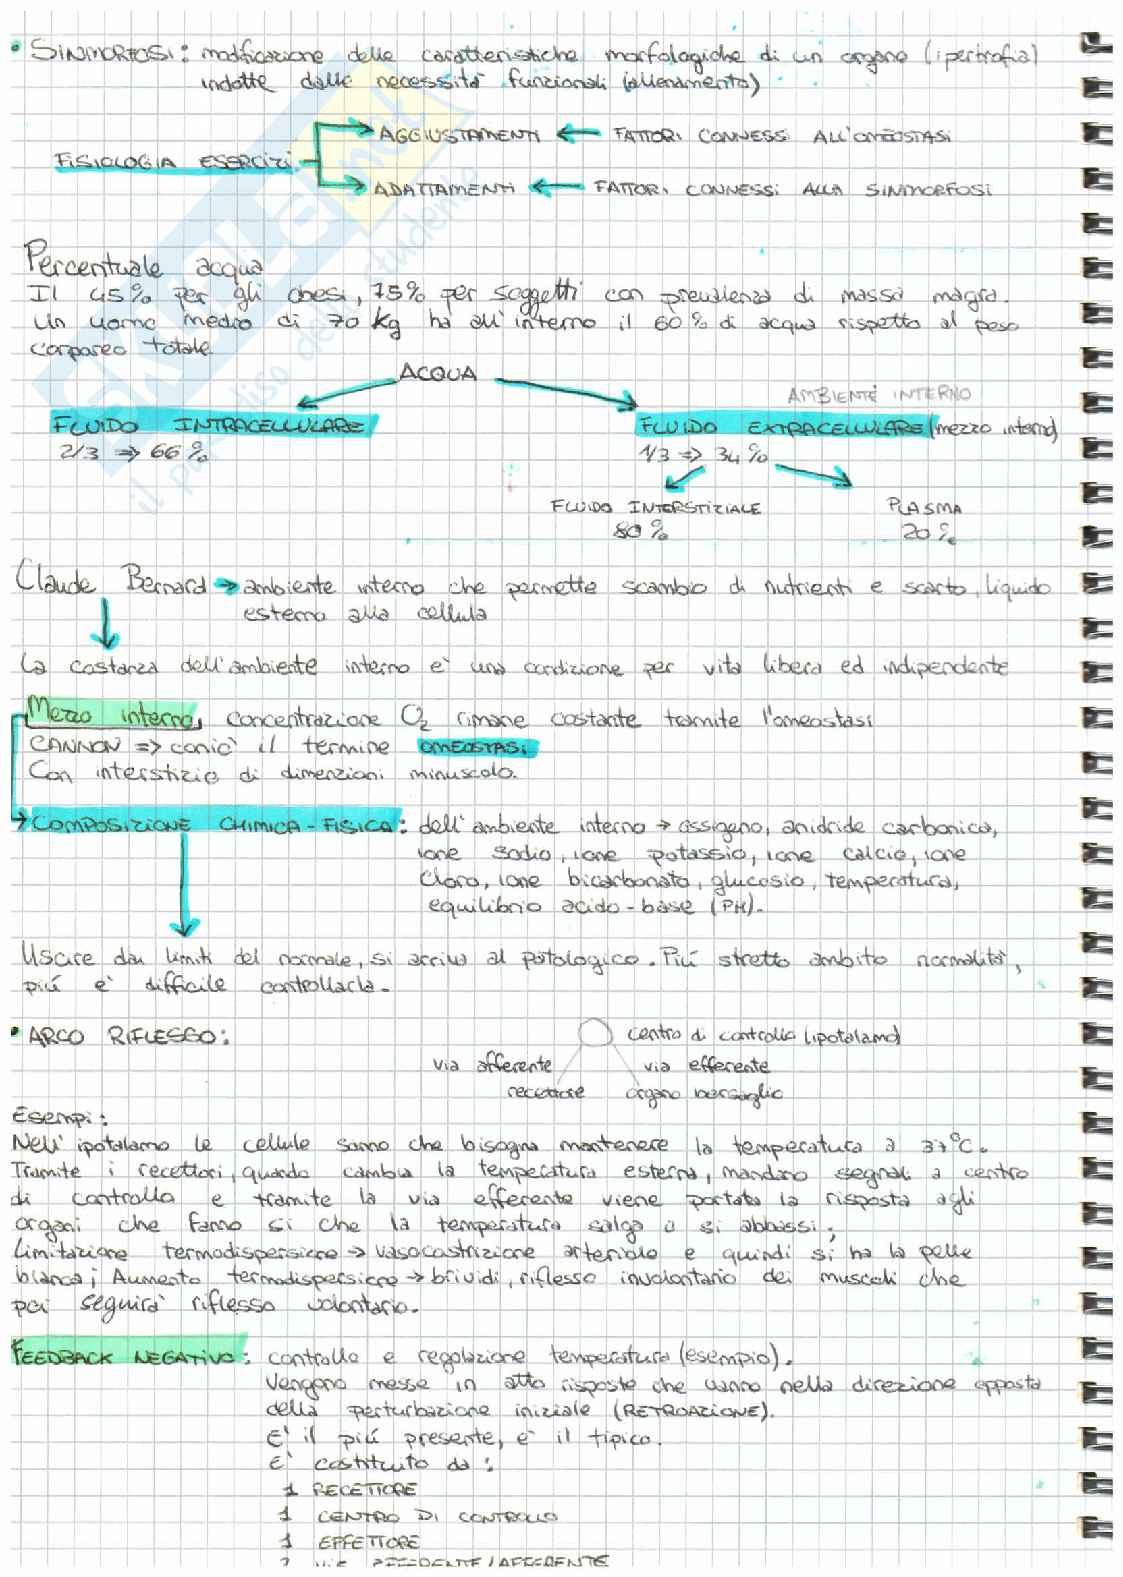 • SINMORFOSI: modificazione delle caratteristiche morfologiche di un organo (ipertrofia)
indotte dalle necessità funzionali (allenamento)
AGGIUSTAMENTI ← FATTORI CONNESSI ALL'OMEOSTASI
FISIOLOGIA ESERCIZI
ADATTAMENTI ← FATTORI CONNESSI ALLA SINMORFOSI
Percentuale acqua
Il 45% per gli obesi, 75% per soggetti con prevalenza di massa magra.
Un uomo medio di 70 kg ha all'interno il 60% di acqua rispetto al peso
corporeo totale
ACQUA
AMBIENTE INTERNO
FLUIDO INTRACELLULARE
FLUIDO EXTRACELLULARE (mezzo interno)
2/3 => 66%
1/3 => 34%
FLUIDO INTERSTIZIALE
PLASMA
80%
20%
Claude Bernard → ambiente interno che permette scambio di nutrienti e scarto, liquido
esterno alla cellula
La costanza dell'ambiente interno è una condizione per vita libera ed indipendente
Mezzo interno, concentrazione O2 rimane costante tramite l'omeostasi
CANNON => coniò il termine OMEOSTASI
Con interstizio di dimenzioni minuscolo.
→ COMPOSIZIONE CHIMICA-FISICA: dell'ambiente interno → ossigeno, anidride carbonica,
ione sodio, ione potassio, ione calcio, ione
cloro, ione bicarbonato, glucosio, temperatura,
equilibrio acido-base (PH).
Uscire dai limiti del normale, si arriva al patologico. Più stretto ambito normalità,
più è difficile controllarla.
• ARCO RIFLESSO:
centro di controllo (ipotalamo)
via afferente
via efferente
recettore
organo bersaglio
Esempi:
Nell'ipotalamo le cellule sanno che bisogna mantenere la temperatura a 37°C.
Tramite i recettori, quando cambia la temperatura esterna, mandano segnali a centro
di controllo e tramite la via efferente viene portata la risposta agli
organi che fanno si che la temperatura salga o si abbassi;
Limitazione termodispersione → vasocostrizione arteriole e quindi si ha la pelle
bianca; Aumento termodispersione → brividi, riflesso involontario dei muscoli che
poi seguirà riflesso volontario.
FEEDBACK NEGATIVO: controllo e regolazione temperatura (esempio).
Vengono messe in atto risposte che vanno nella direzione opposta
della perturbazione iniziale (RETROAZIONE).
E' il più presente, è il tipico.
E' costituito da:
1 RECETTORE
1 CENTRO DI CONTROLLO
1 EFFETTORE
2 VIE EFFERENTE/AFFERENTE